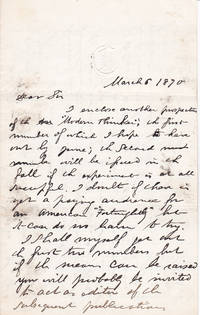 March 6 1870
Dear Sir
I enclose another prospectus
of the "Modern Thinker", the first
number of which I hope to have
out by June; the second
number will be issued in the
fall if the experiment is at all
successful. I doubt if there is
yet a paying audience for
an American Fortnightly but
it can do no harm to try.
I shall myself get out
first two numbers but
if the means can be raised
you will probably be invited
to act as editor of the
subsequent publications